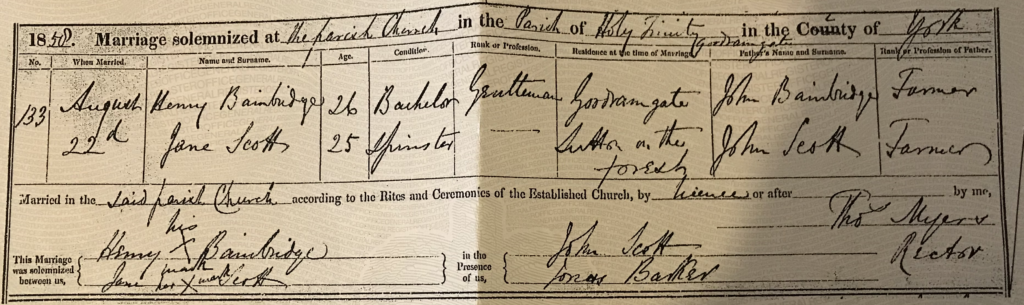 1858. Marriage solemnized at the parish Church in the Parish of Holy Trinity Goodramgate in the County of York
No. When Married. Name and Surname. Age. Condition. Rank or Profession. Residence at the time of Marriage. Father's Name and Surname. Rank or Profession of Father.
133 August Henry Bainbridge 26 Bachelor Gentleman Goodramgate John Bainbridge Farmer
22d Jane Scott 25 Spinster — Sutton on the John Scott Farmer
forest
Married in the said parish Church according to the Rites and Ceremonies of the Established Church, by licence or after by me,
Thos Myers
Rector
This Marriage was solemnized between us, { Henry his X mark Bainbridge
Jane her X mark Scott } in the Presence of us, { John Scott
Barker }